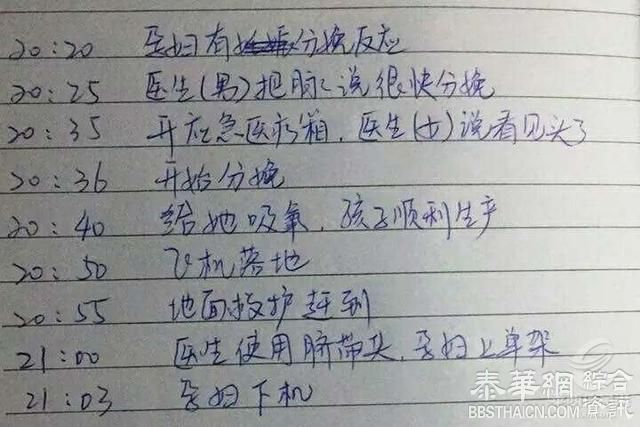 20:20 孕妇有分娩反应
20:25 医生(男)把脉说很快分娩
20:35 开应急医疗箱,医生(女)说看见头了
20:36 开始分娩
20:40 给她吸氧,孩子顺利生产
20:50 飞机落地
20:55 地面救护赶到
21:00 医生使用脐带夹,孕妇上单架
21:03 孕妇下机
泰華網 綜合
BBSTHAICN.COM 資訊